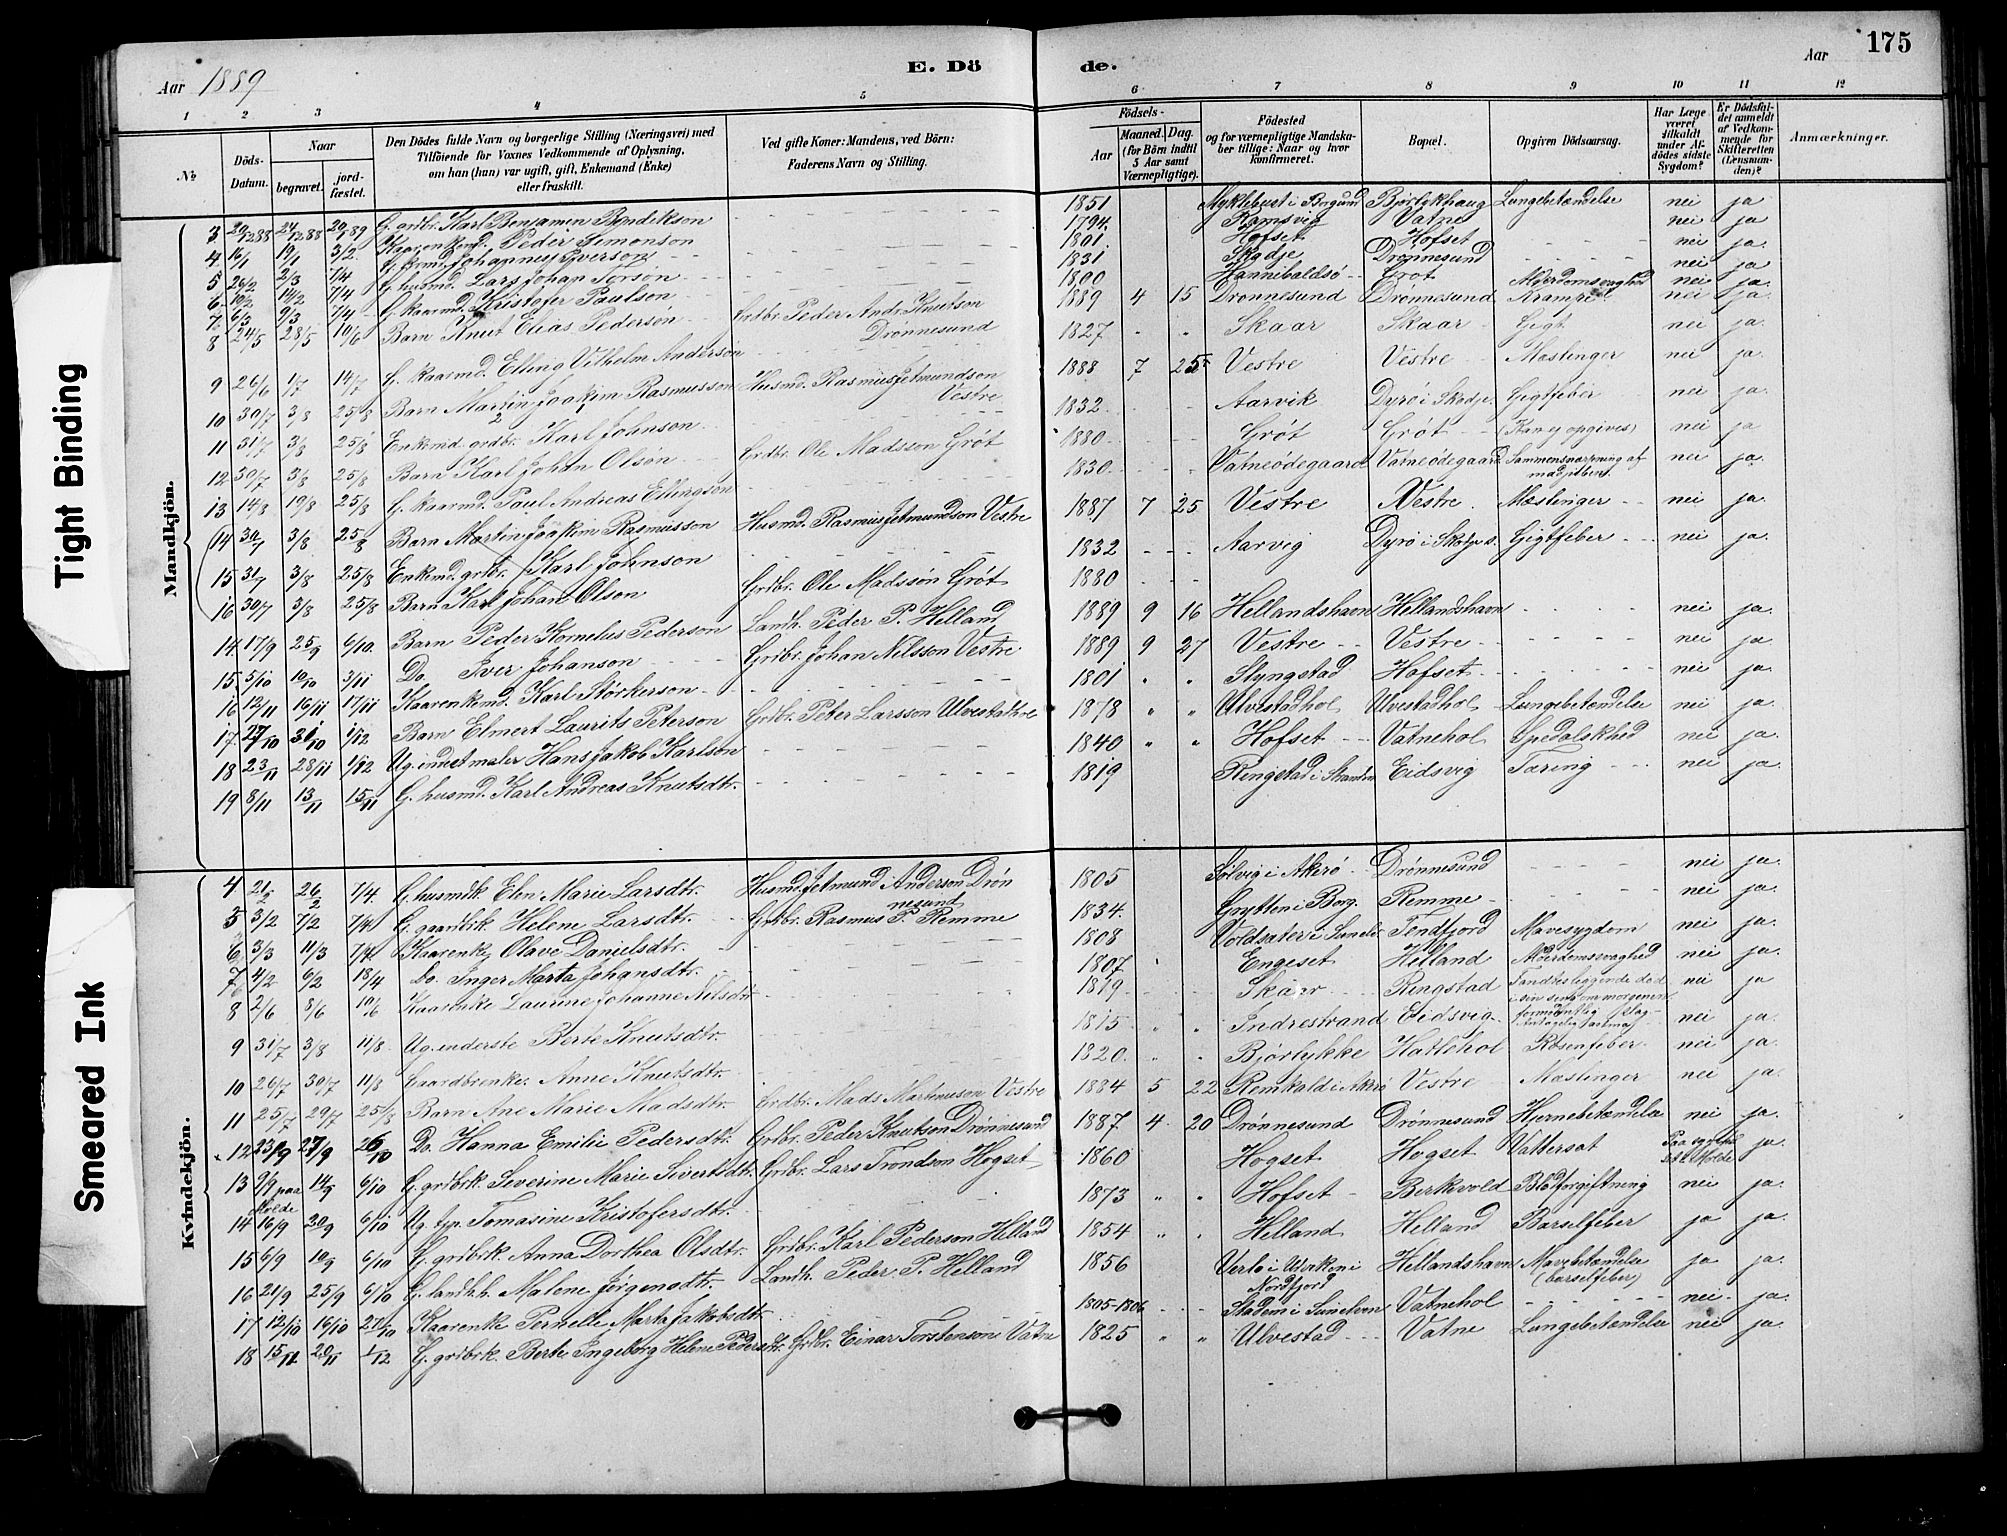 Aar 1889 E. Dö de. Aar 175
1 2 3 4 5 6 7 8 9 10 11 12
№
Döds-Datum.
Naar
begravet.
jord-fæstet.
Den Dödes fulde Navn og borgerlige Stilling (Næringsvei) med Tilföiende for Voxnes Vedkommende af Oplysning, om han (hun) var ugift, gift, Enkemand (Enke) eller fraskilt.
Ved gifte Koner: Mandens, ved Börn: Faderens Navn og Stilling.
Födsels-
Aar
Maaned. Dag.
(for Börn indtil 5 Aar samt Værnepligtige).
Födested og for værnepligtige Mandskaber tillige: Naar og hvor konfirmeret.
Bopæl.
Opgiven Dödsaarsag.
Har Læge været tilkaldt under Afdödes sidste Sygdom?
Er Dödsfaldet anmeldt af Vedkommende for Skifteretten (Lensmanden)?
Anmærkninger.
Mandkjön.
3 20/12 88 27/12 88 20/1 89 G. grdbr. Karl Benjamin Bendikson 1851 Myklebust i Borgund Bjørlykhaug Lungebetændelse nei ja
4 16/1 19/1 3/2 Kaarenkmd. Peder Simonson 1794 Ramsvig Vatne nei ja
5 26/2 2/3 7/4 G. Johannes Iverson 1801 Hofset Hofset nei ja
6 10/2 14/2 7/4 G. husmd. Lars Johan Torson 1831 Skodje Drønnesund nei ja
7 6/3 9/3 7/4 G. kaarmd. Kristofer Paulson 1800 Hannibaldsø Grøt Alderdomsvaghed nei ja
8 24/5 28/5 10/6 Barn Knut Elias Pederson Grdbr. Peder Andr. Knutson Drønnesund 1889 4 15 Drønnesund Drønnesund Krampe nei ja
9 26/6 1/7 14/7 G. kaarmd. Elling Vilhelm Anderson 1827 Skaar Skaar Gigt nei ja
10 30/7 3/8 25/8 Barn Martin Joakim Rasmusson Husmd. Rasmus Jetmundson Vestre 1888 7 25 Vestre Vestre Mæslinger nei ja
11 31/7 3/8 25/8 Enkemd. grdbr. Karl Johnson 1832 Aarvik Dyrø i Skodje Gigtfeber nei ja
12 30/7 3/8 25/8 Barn Karl Johan Olson Grdbr. Ole Madsson Grøt 1880 Grøt Grøt (Kan ej opgives) nei ja
13 14/8 19/8 25/8 G. kaarmd. Paul Andreas Ellingson 1830 Vatneødegaard Vatneødegaard Sammensnørpning af nei ja
14 30/7 3/8 25/8 Barn Martin Joakim Rasmusson Husmd. Rasmus Jetmundson Vestre 1887 7 25 Vestre Vestre Mæslinger nei ja
15 31/7 3/8 25/8 Enkemd. grdbr. Karl Johnson 1832 Aarvig Dyrø i Skodje s. Gigtfeber nei ja
16 30/7 3/8 25/8 Barn Karl Johan Olson Grdbr. Ole Madsson Grøt 1880
14 17/9 25/9 6/10 Barn Peder Kornelius Pederson Landh. Peder P. Helland 1889 9 16 Hellandshavn Hellandshavn nei ja
15 5/10 10/10 3/11 Do. Iver Johanson Grdbr. Johan Nilsson Vestre 1889 9 27 Vestre Vestre nei ja
16 12/11 16/11 17/11 Kaarenkmd. Karl Størkerson 1801 Slyngstad Hofset nei ja
17 27/10 31/10 1/12 Barn Elmert Laurits Peterson Grdbr. Peter Larsson Ulvestadhol 1878 Ulvestadhol Ulvestadhol Lungebetændelse nei ja
18 23/11 28/11 1/12 Ug. inderst maler Hans Jakob Karlson 1840 Hofset Vatnehol Spedalskhed nei ja
19 8/11 13/11 15/11 G. husmd. Karl Andreas Knutsdtr. 1819 Ringstad i Stranden Eidsvig Tæring nei ja
Kvindekjön.
4 21/2 26/2 7/4 G. husmdk. Elen Marie Larsdtr. Husmd. Jetmund Anderson Drønnesund 1805 Solvig i Akerø Drønnesund nei ja
5 3/2 7/2 7/4 G. gaardbrk. Helene Larsdtr. Grdbr. Rasmus P. Remme 1834 Grytten i Borg. Remme nei ja
6 3/3 11/3 7/4 Kaarenke Olave Danielsdtr. 1808 Voldsæter i Sunelv. Tendfjord Mavesygdom nei ja
7 4/2 6/2 18/4 Do. Inger Marta Johansdtr. 1807 Engeset Helland Alderdomsvaghed nei ja
8 2/6 8/6 10/6 Kaarenke Laurine Johanne Nilsdtr. 1819 Skaar Ringstad Fandtes liggende død i sin seng om morgenen formodentlig slag nei ja
9 31/7 3/8 11/8 Ug. inderste Berte Knutsdtr. 1815 Indrestrand Eidsvig Antagelig nei ja
10 26/7 30/7 11/8 Gaardbrenke Anne Knutsdtr. 1820 Bjørlykke Hatlehol Rosenfeber nei ja
11 25/7 29/7 25/8 Barn Ane Marie Madsdtr. Grdbr. Mads Martinuson Vestre 1884 5 22 Remkald i Akrø Vestre Mæslinger nei ja
12 23/9 27/9 26/10 Do. Hanna Emilie Pedersdtr. Grdbr. Peder Knutson Drønnesund 1887 4 20 Drønnesund Drønnesund Hjernebetændelse nei ja
13 9/9 paa Molde 14/9 6/10 G. grdbrk. Severine Marie Sivertsdtr. Grdbr. Lars Trondson Hogset 1860 Hogset Hogset Vattersot Paa Molde ja
14 16/9 20/9 6/10 Ug. tjp. Tomasine Kristofersdtr. 1873 Hofset Berkevold Blodforgiftning nei ja
15 6/9 10/9 6/10 G. grdbrk. Anna Dorthea Olsdtr. Grdbr. Karl Pederson Helland 1854 Helland Helland Barselfeber ja ja
16 21/9 25/9 6/10 G. landhh. Malene Jørgensdtr. Landh. Peder P. Helland 1856 i Nordfjord Hellandshavn Mavebetændelse (barselfeber) ja ja
17 12/10 16/10 27/10 Kaarenke Pernelle Marta Jakobsdtr. 1805-1806 Stadem i Sunelven Vatnehol nei ja
18 15/11 20/11 1/12 G. grdbrk. Berte Ingeborg Helene Pedersdtr. Grdbr. Einar Torstenson Vatne 1825 Ulvestad Vatne Lungebetændelse nei ja
Tight Binding
Smeared Ink